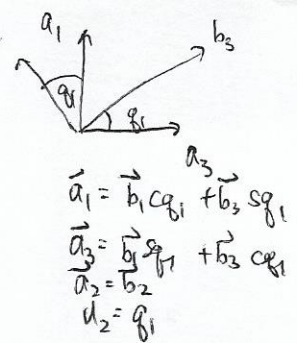 a₁
b₃
q₁
q₁
a₃
a⃗₁ = b⃗₁ cq₁ + b⃗₃ sq₁
a⃗₃ = b⃗₁ sq₁ + b⃗₃ cq₁
a⃗₂ = b⃗₂
u₂ = q₁